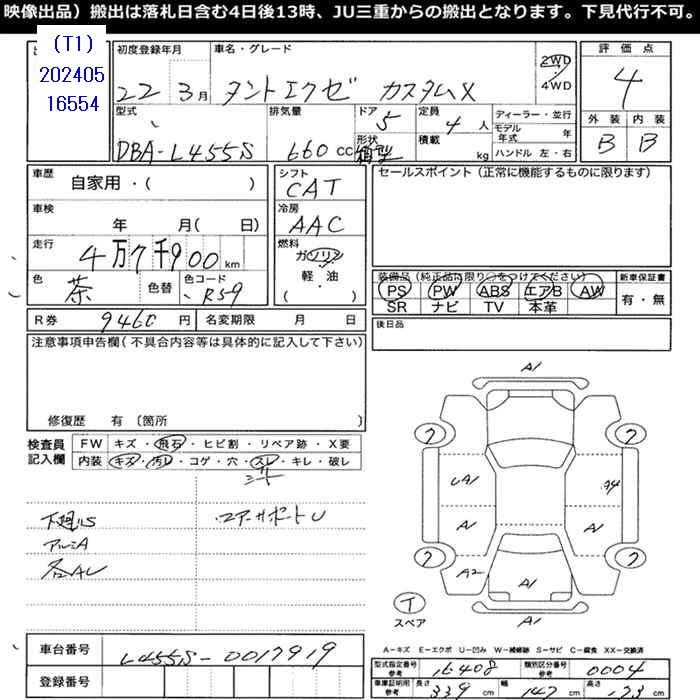 映像出品）搬出は落札日含む4日後13時、JU三重からの搬出となります。下見代行不可。
(T1)
202405
16554
初度登録年月 車名・グレード
22 3月 タントエクゼ カスタムX 2WD 4WD
評価点
4
型式 排気量 ドア 定員 ディーラー・並行
DBA-L455S 660cc 5 4人
形状 箱型 積載 kg
モデル年式 年
ハンドル 左・右
外装 内装
B B
車歴 自家用・( )
シフト CAT
セールスポイント（正常に機能するものに限ります）
車検 年 月( 日)
冷房 AAC
走行 4万7千900km
燃料 ガソリン 軽・油 ( )
色 茶 色替 色コード R59
装備品（純正品に限り○をつけてください） 新車保証書
PS PW ABS エアB AW 有・無
SR ナビ TV 本革
R券 9460円 名変期限 月 日
後日品
注意事項申告欄(不具合内容等は具体的に記入して下さい)
修復歴 有〔箇所 〕
検査員記入欄
FW キズ・飛石・ヒビ割・リペア跡・X要
内装 キズ・汚レ・コゲ・穴・スレ・キレ・破レ
シート
下廻りS
エアーサポートU
アルミA
各AU
A1
A1
A1
A1
A2
A1
A1
T
スペア
車台番号 L455S-0017919
登録番号
A－キズ E－エクボ U－凹み W－補修跡 S－サビ C－腐食 XX－交換済
型式指定番号 参考 16408 類別区分番号 参考 0004
車庫証明用 参考 長さ 339cm 幅 147cm 高さ 173cm